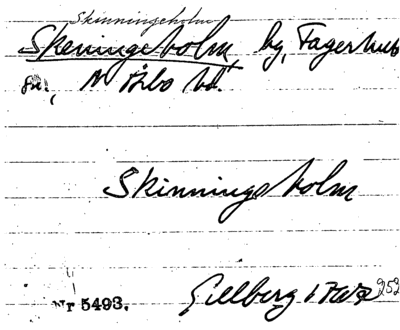 Skinningeholm
Skeningeholm, by, Fagerhult
sn., N Åsbo hd.
Skinningeholm
Nr 5493. Gillberg 252